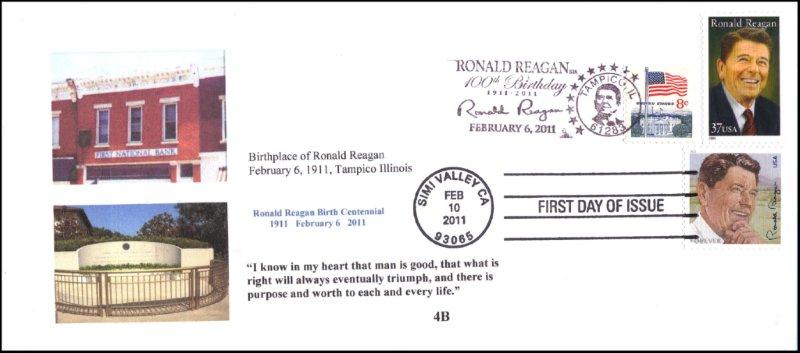 RONALD REAGAN STA
100th Birthday
1911-2011
Ronald Reagan
FEBRUARY 6, 2011
TAMPICO, IL
61283
UNITED STATES
8c
Ronald Reagan
37USA
FIRST NATIONAL BANK
Birthplace of Ronald Reagan
February 6, 1911, Tampico Illinois
SIMI VALLEY CA
FEB
10
2011
93065
FIRST DAY OF ISSUE
USA
Ronald Reagan
FOREVER
Ronald Reagan Birth Centennial
1911 February 6 2011
“I know in my heart that man is good, that what is
right will always eventually triumph, and there is
purpose and worth to each and every life.”
4B